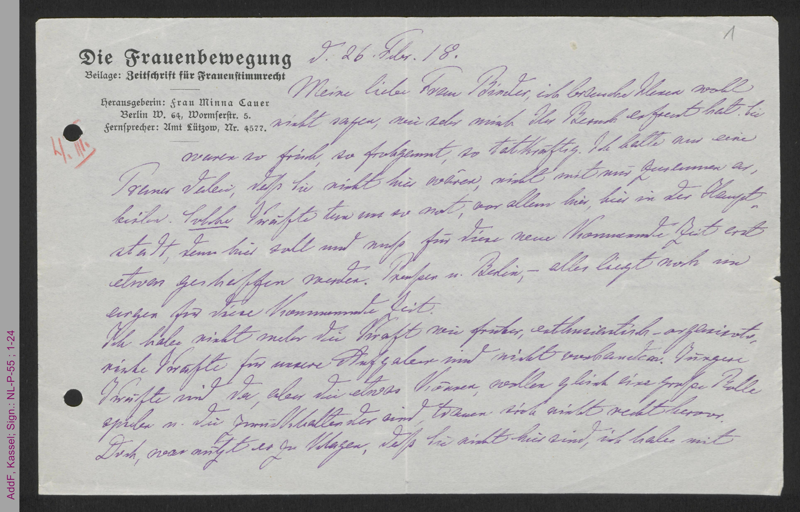 1
Die Frauenbewegung
Beilage: Zeitschrift für Frauenstimmrecht
Herausgeberin: Frau Minna Cauer
Berlin W. 64, Wormserstr. 5.
Fernsprecher: Amt Lützow, Nr. 4577.
d. 26. Febr. 18.
Meine liebe Frau Binder, ich brauche Ihnen wohl
nicht sagen, wie sehr mich Ihr Besuch erfreut hat. Sie
waren so frisch, so frohgemut, so tatkräftig. Ich hatte nur eine
Trauer dabei, daß Sie nicht hier wären, nicht mit mir zusammen ar-
beiten. Solche Kräfte tun uns so not, vor allem hier in der Haupt-
stadt, denn hier soll und muß für diese neue kommende Zeit erst
etwas geschaffen werden. Preußen u. Berlin, – alles liegt noch im
argen für diese kommende Zeit.
Ich habe nicht mehr die Kraft wie früher, enthusiastisch-organisato-
rische Kräfte für unsere Aufgaben sind nicht vorhanden. Jüngere
Kräfte sind da, aber die etwas können, wollen gleich eine große Rolle
spielen u. die zurückhaltender sind, trauen sich nicht recht hervor.
Doch, was nützt es zu klagen, daß Sie nicht hier sind, ich habe mit
AddF, Kassel; Sign.: NL-P-55 ; 1-24